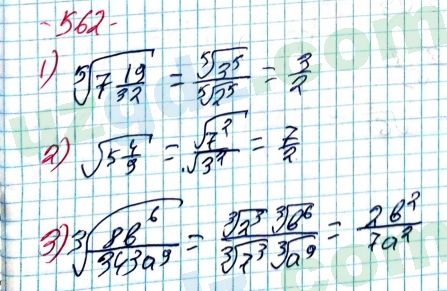 -562-
1) ⁵√(7 19/32) = ⁵√3⁵ / ⁵√2⁵ = 3/2
2) √(5 4/9) = √7² / √3² = 7/2
3) ³√(8b⁶ / 343a⁹) = ³√2³ ³√b⁶ / ³√7³ ³√a⁹ = 2b² / 7a²